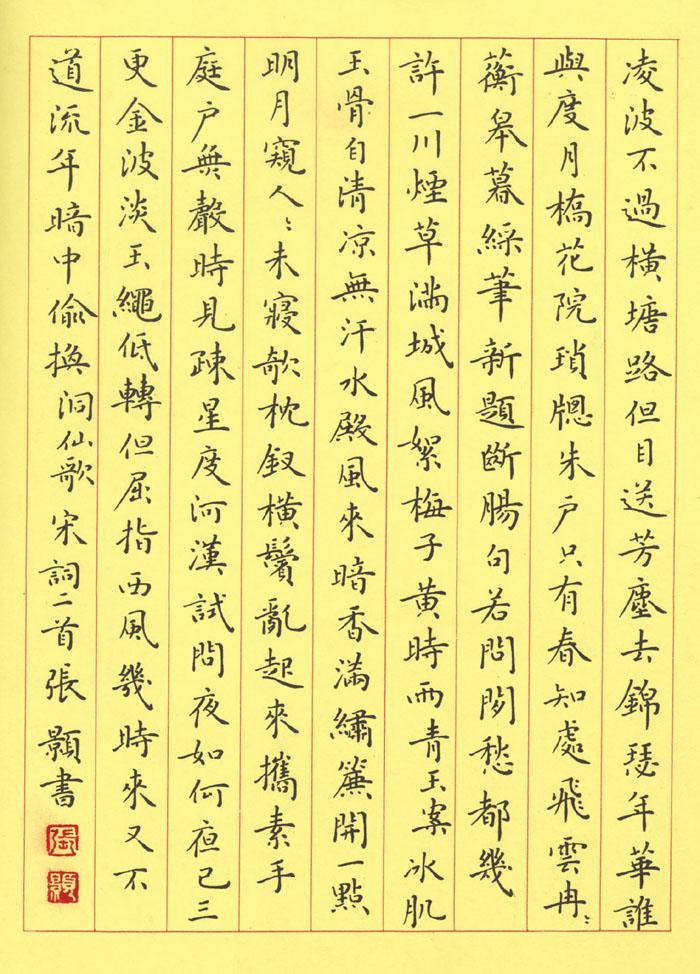 凌波不過橫塘路但目送芳塵去錦瑟年華誰
與度月橋花院瑣牕朱户只有春知處飛雲冉〻
蘅皋暮綵筆新題斷腸句若問閒愁都幾
許一川煙草滿城風絮梅子黃時雨青玉案冰肌
玉骨自清凉無汗水殿風來暗香滿繡簾開一點
明月窺人〻未寢欹枕釵橫鬢亂起來攜素手
庭户無聲時見疎星度河漢試問夜如何夜已三
更金波淡玉繩低轉但屈指西風幾時來又不
道流年暗中偷換洞仙歌宋詞二首張顥書
張
顥